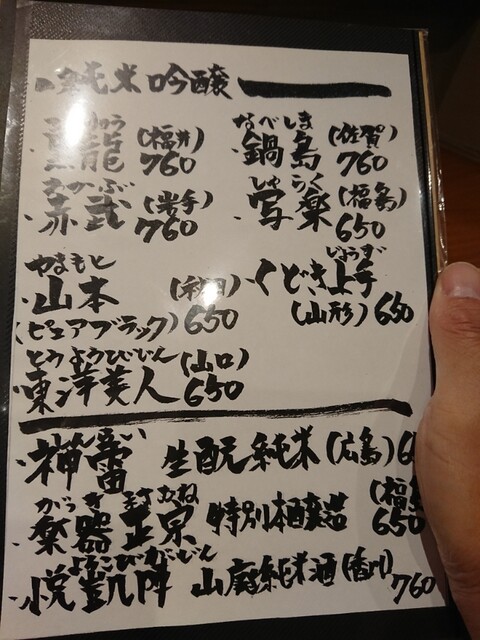 純米吟醸
なべしま
龍(福井) 鍋島(佐賀)
760 760
あかぶ しゃらく
赤武(岩手) 写楽(福島)
760 650
やまもと じょうず
山本(秋田) くどき上手
(ピュアブラック) 650 (山形) 650
とうようびじん
東洋美人(山口)
650
神雷 生酛純米(広島)
がっきまさむね
楽器正宗 特別本醸造 (福島
650
よろこびがいじん
悦凱陣 山廃純米酒(香川)
760